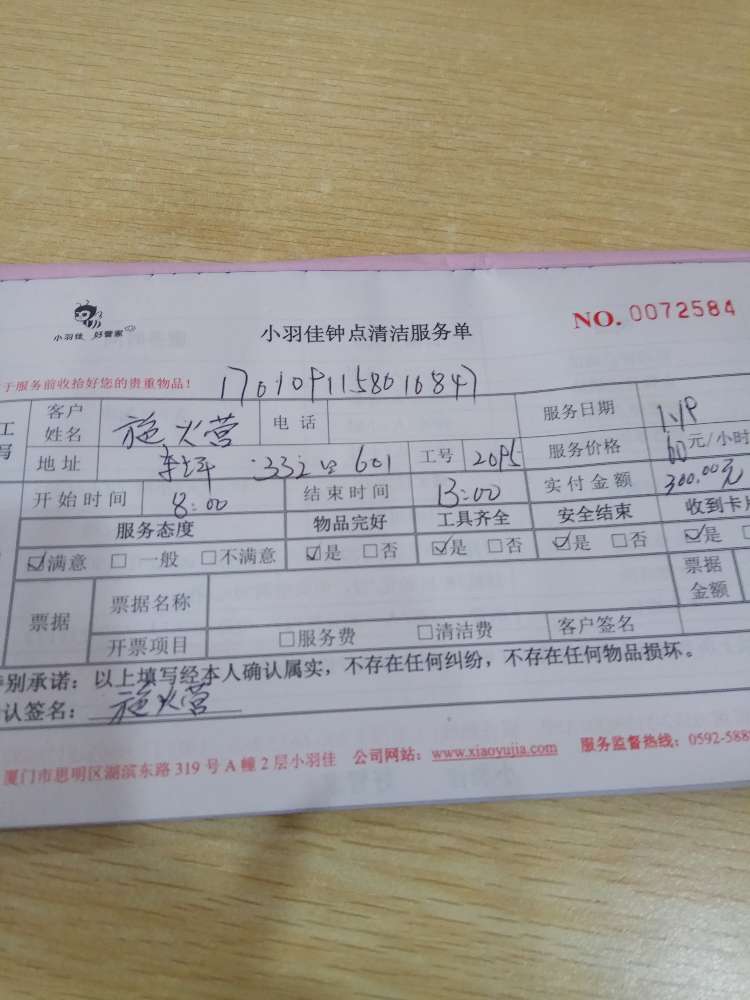 小羽佳 好管家
小羽佳钟点清洁服务单
NO. 0072584
于服务前收拾好您的贵重物品！
1701091158016847
客户姓名 施火营 电话 服务日期
地址 332号 601 工号 2095 服务价格 60元/小时
开始时间 8:00 结束时间 13:00 实付金额 300.00元
服务态度 物品完好 工具齐全 安全结束 收到卡片
☑满意 □一般 □不满意 ☑是 □否 ☑是 □否 ☑是 □否 ☑是
票据 票据名称 票据金额
开票项目 □服务费 □清洁费 客户签名
特别承诺：以上填写经本人确认属实，不存在任何纠纷，不存在任何物品损坏。
认签名：施火营
厦门市思明区湖滨东路319号A幢2层小羽佳 公司网站：www.xiaoyujia.com 服务监督热线：0592-588